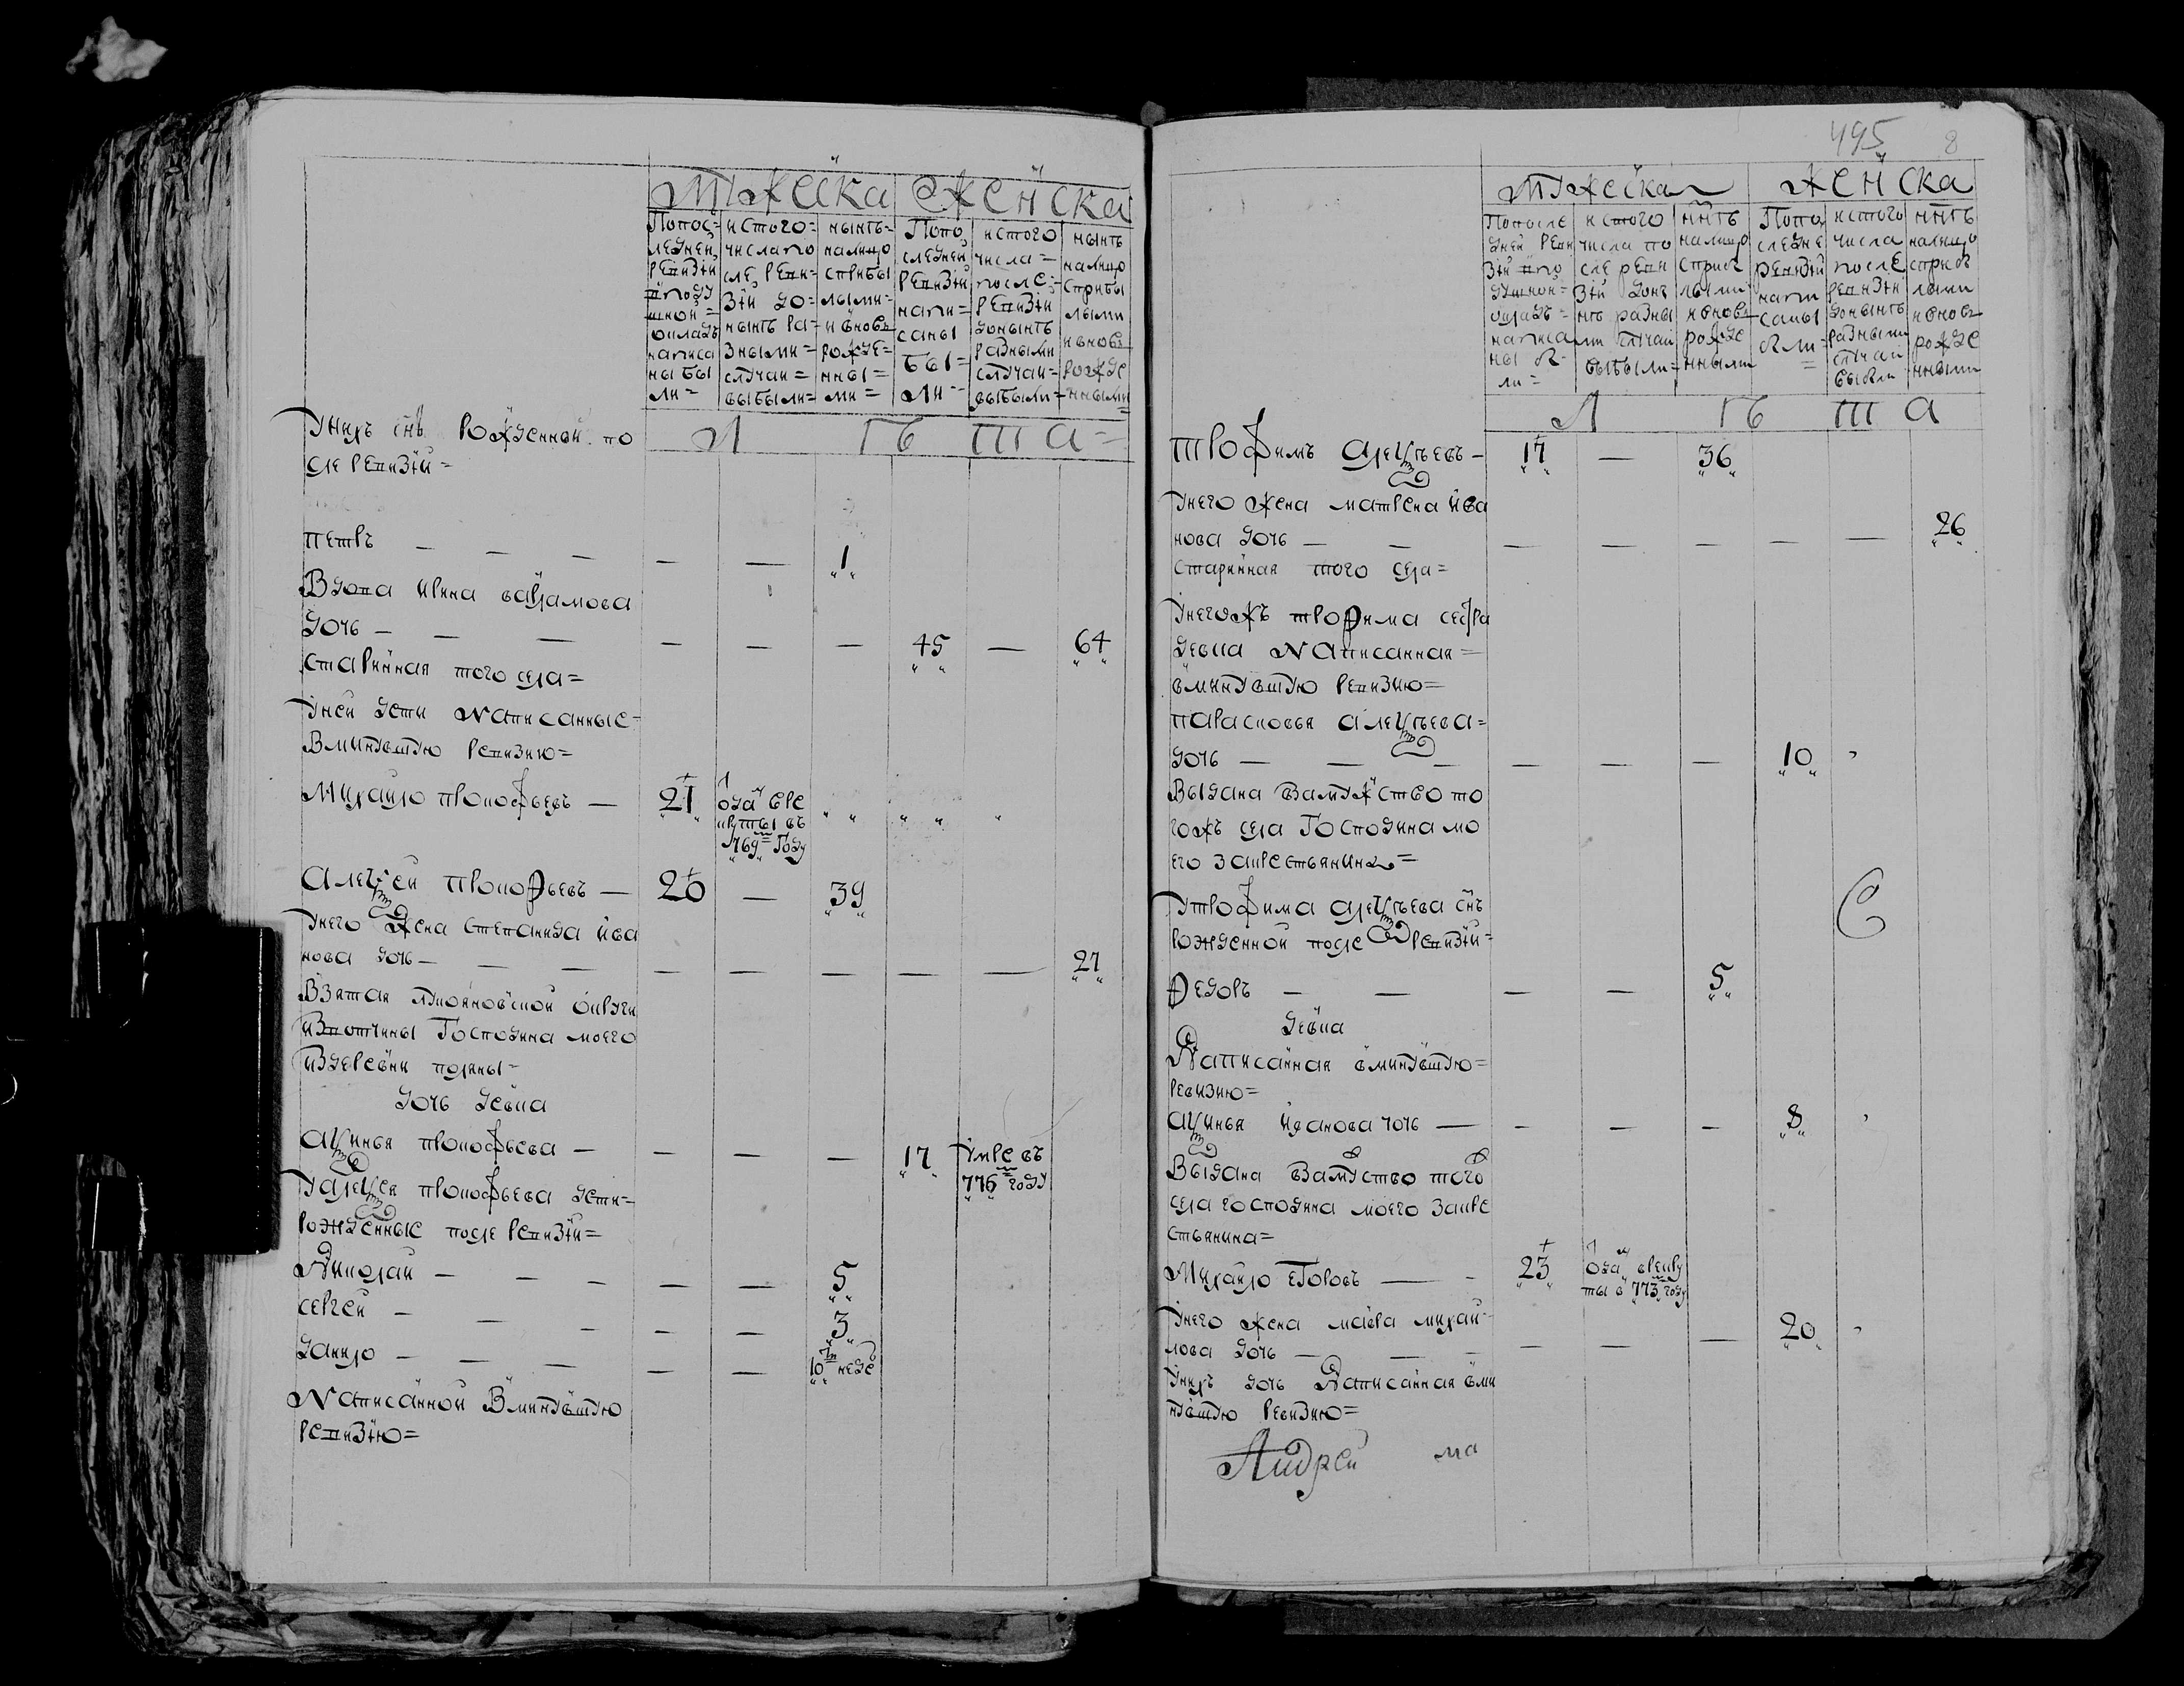 мужеска
женска
Попос=
ледней
ревизіи
вподу
шной=
окладъ
написа
ны бы
ли=
ис того=
числа по
сле реви=
зіи до=
нынѣ ра=
зными=
случаи=
выбыли=
нынѣ=
налицо
с прибы
лыми=
и вновь
рожде=
нны=
ми=
Попо
следней
ревизіи
напи=
саны
бы=
ли=
ис того
числа=
после=
ревизіи
донынѣ
разными
случаи=
выбыли=
нынѣ
налицо
с прибы
лыми
и вновь
рожде
нными
Л ѣ т а=
У нихъ снъ рожденной по
сле ревизіи=
петръ — — — — — 1
Вдова ирина варламова
дочь — — — — — — 45 — 64
старинная того села=
У ней дети написанные=
В минувшую ревизию=
Михайло прокофьевъ — 21 отда в ре
круты въ
769 году
Алексей прокофьевъ — 20 — 39
У него жена степанида ива
нова дочь — — — — — — — — 27
Взятая лукояновской округи
из вотчины Господина моего
из деревни поляны=
дочь девка
аксинья прокофьева — — — — 17 умре въ
776 году
У алексея прокофьева дети=
рожденные после ревизіи=
Николай — — — — — 5
сергей — — — — — 3
данило — — — — — 10 неде
Написанной в минувшую
ревизію=
495 8
мужеска
женска
Попосле
дней реви
зіи в по
душной=
окладъ=
написа
ны бы
ли=
ис того
числа по
сле реви
зіи донъ
нѣ разны
ми случаи
выбыли=
ннѣ
налицо
с приб
лыми
и вновь
рожде
нными
Попо
следне
ревизіи
напи
саны
были=
ис того
числа
после
ревизіи
донынѣ
разными
случаи
выбли
ннѣ
налицо
с приб
лыми
и вновь
рожде
нными
Л ѣ т а
трофимъ алексѣевъ — 17 — 36
У него жена матрена ива
нова дочь — — — — — — — 26
старинная того села=
У него жъ трофима сестра
девка написанная=
в минувшую ревизию=
парасковья алексѣева=
дочь — — — — — — 10
Выдана в замужство то
гожъ села Господина мо
его за крестьянина=
У трофима алексѣева снъ
рожденной после ревизіи=
Федоръ — — — — 5
девка
Написанная в минувшую=
ревизию=
аксинья иванова дочь — — — — 8
Выдана в замуство того
села господина моего за кре
стьянина=
Михайло егоровъ — 23 отда в рекру
ты в 773 году
У него жена мавра михай
лова дочь — — — — — — 20
У нихъ дочь Написанная в ми
нувшую ревизию=
Андрей ма